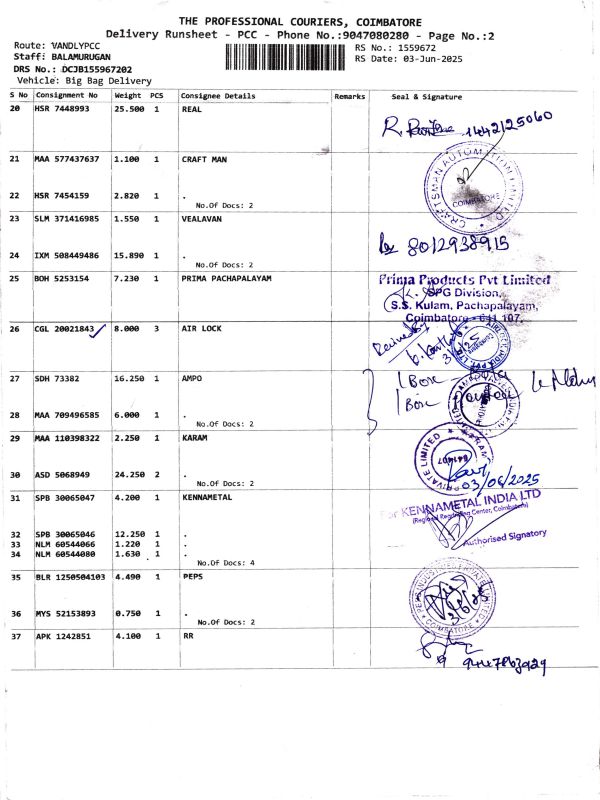 THE PROFESSIONAL COURIERS, COIMBATORE
Delivery Runsheet - PCC - Phone No.:9047080280 - Page No.:2
Route: VANDLYPCC
Staff: BALAMURUGAN
DRS No.: DCJB155967202
Vehicle: Big Bag Delivery
RS No.: 1559672
RS Date: 03-Jun-2025
S No Consignment No Weight PCS Consignee Details Remarks Seal & Signature
20 HSR 7448993 25.500 1 REAL
21 MAA 577437637 1.100 1 CRAFT MAN
CRAFTSMAN AUTOMATION LIMITED
COIMBATORE
22 HSR 7454159 2.820 1 .
No.Of Docs: 2
23 SLM 371416985 1.550 1 VEALAVAN
8012938915
24 IXM 508449486 15.890 1 .
No.Of Docs: 2
25 BOH 5253154 7.230 1 PRIMA PACHAPALAYAM
Prima Products Pvt Limited
SPG Division,
S.S. Kulam, Pachapalayam,
Coimbatore - 641 107.
26 CGL 20021843 8.000 3 AIR LOCK
Received By
3/6/25
27 SDH 73382 16.250 1 AMPO
1 Box
1 Box
28 MAA 709496585 6.000 1 .
No.Of Docs: 2
29 MAA 110398322 2.250 1 KARAM
PRIVATE LIMITED
641407
30 ASD 5068949 24.250 2 .
No.Of Docs: 2
03/06/2025
31 SPB 30065047 4.200 1 KENNAMETAL
For KENNAMETAL INDIA LTD
(Regional Regrinding Center, Coimbatore)
Authorised Signatory
32 SPB 30065046 12.250 1 .
33 NLM 60544066 1.220 1 .
34 NLM 60544080 1.630 1 .
No.Of Docs: 4
35 BLR 1250504103 4.490 1 PEPS
COIMBATORE
36 MYS 52153893 0.750 1 .
No.Of Docs: 2
37 APK 1242851 4.100 1 RR